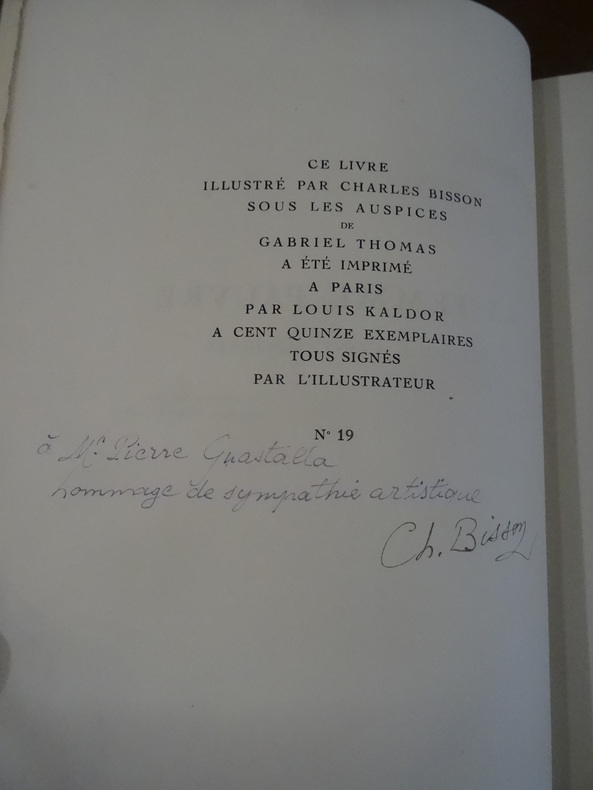 CE LIVRE
ILLUSTRÉ PAR CHARLES BISSON
SOUS LES AUSPICES
DE
GABRIEL THOMAS
A ÉTÉ IMPRIMÉ
A PARIS
PAR LOUIS KALDOR
A CENT QUINZE EXEMPLAIRES
TOUS SIGNÉS
PAR L'ILLUSTRATEUR
N° 19
à Mr. Pierre Guastalla
hommage de sympathie artistique
Ch. Bisson